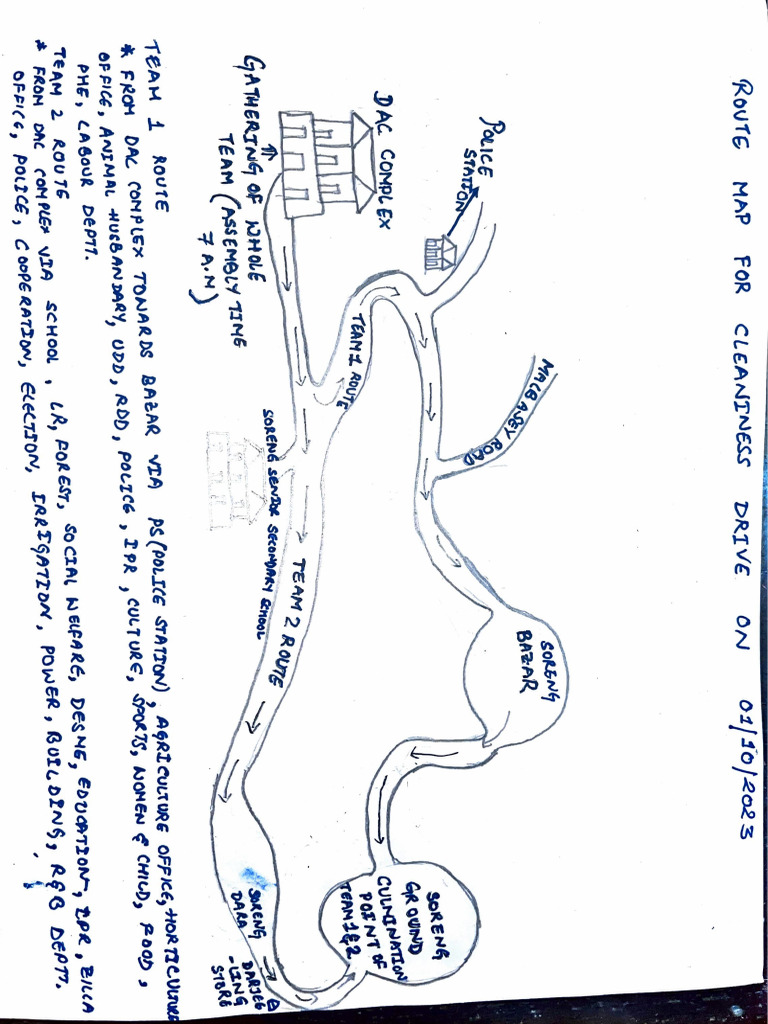 ROUTE MAP FOR CLEANINESS DRIVE ON 01/10/2023
POLICE
STATION
MALBASEY ROAD
DAC COMPLEX
SORENG
BAZAR
TEAM 1 ROUTE
GATHERING OF WHOLE
TEAM (ASSEMBLY TIME
7 A.M)
SORENG SENIOR SECONDARY SCHOOL
TEAM 2 ROUTE
SORENG
GROUND
CULMINATION
POINT OF
TEAM 1 & 2
SORENG
DARA
DARJEE
-LING
STORE
TEAM 1 ROUTE
* FROM DAC COMPLEX TOWARDS BAZAR VIA PS (POLICE STATION), AGRICULTURE OFFICE, HORTICULTURE
OFFICE, ANIMAL HUSBANDARY, UDD, RDD, POLICE, IPR, CULTURE, SPORTS, WOMEN & CHILD, FOOD,
PHE, LABOUR DEPTT.
TEAM 2 ROUTE
* FROM DAC COMPLEX VIA SCHOOL, LR, FOREST, SOCIAL WELFARE, DESME, EDUCATION, IPR, ZILLA
OFFICE, POLICE, COOPERATION, ELECTION, IRRIGATION, POWER, BUILDING, R&B DEPTT.